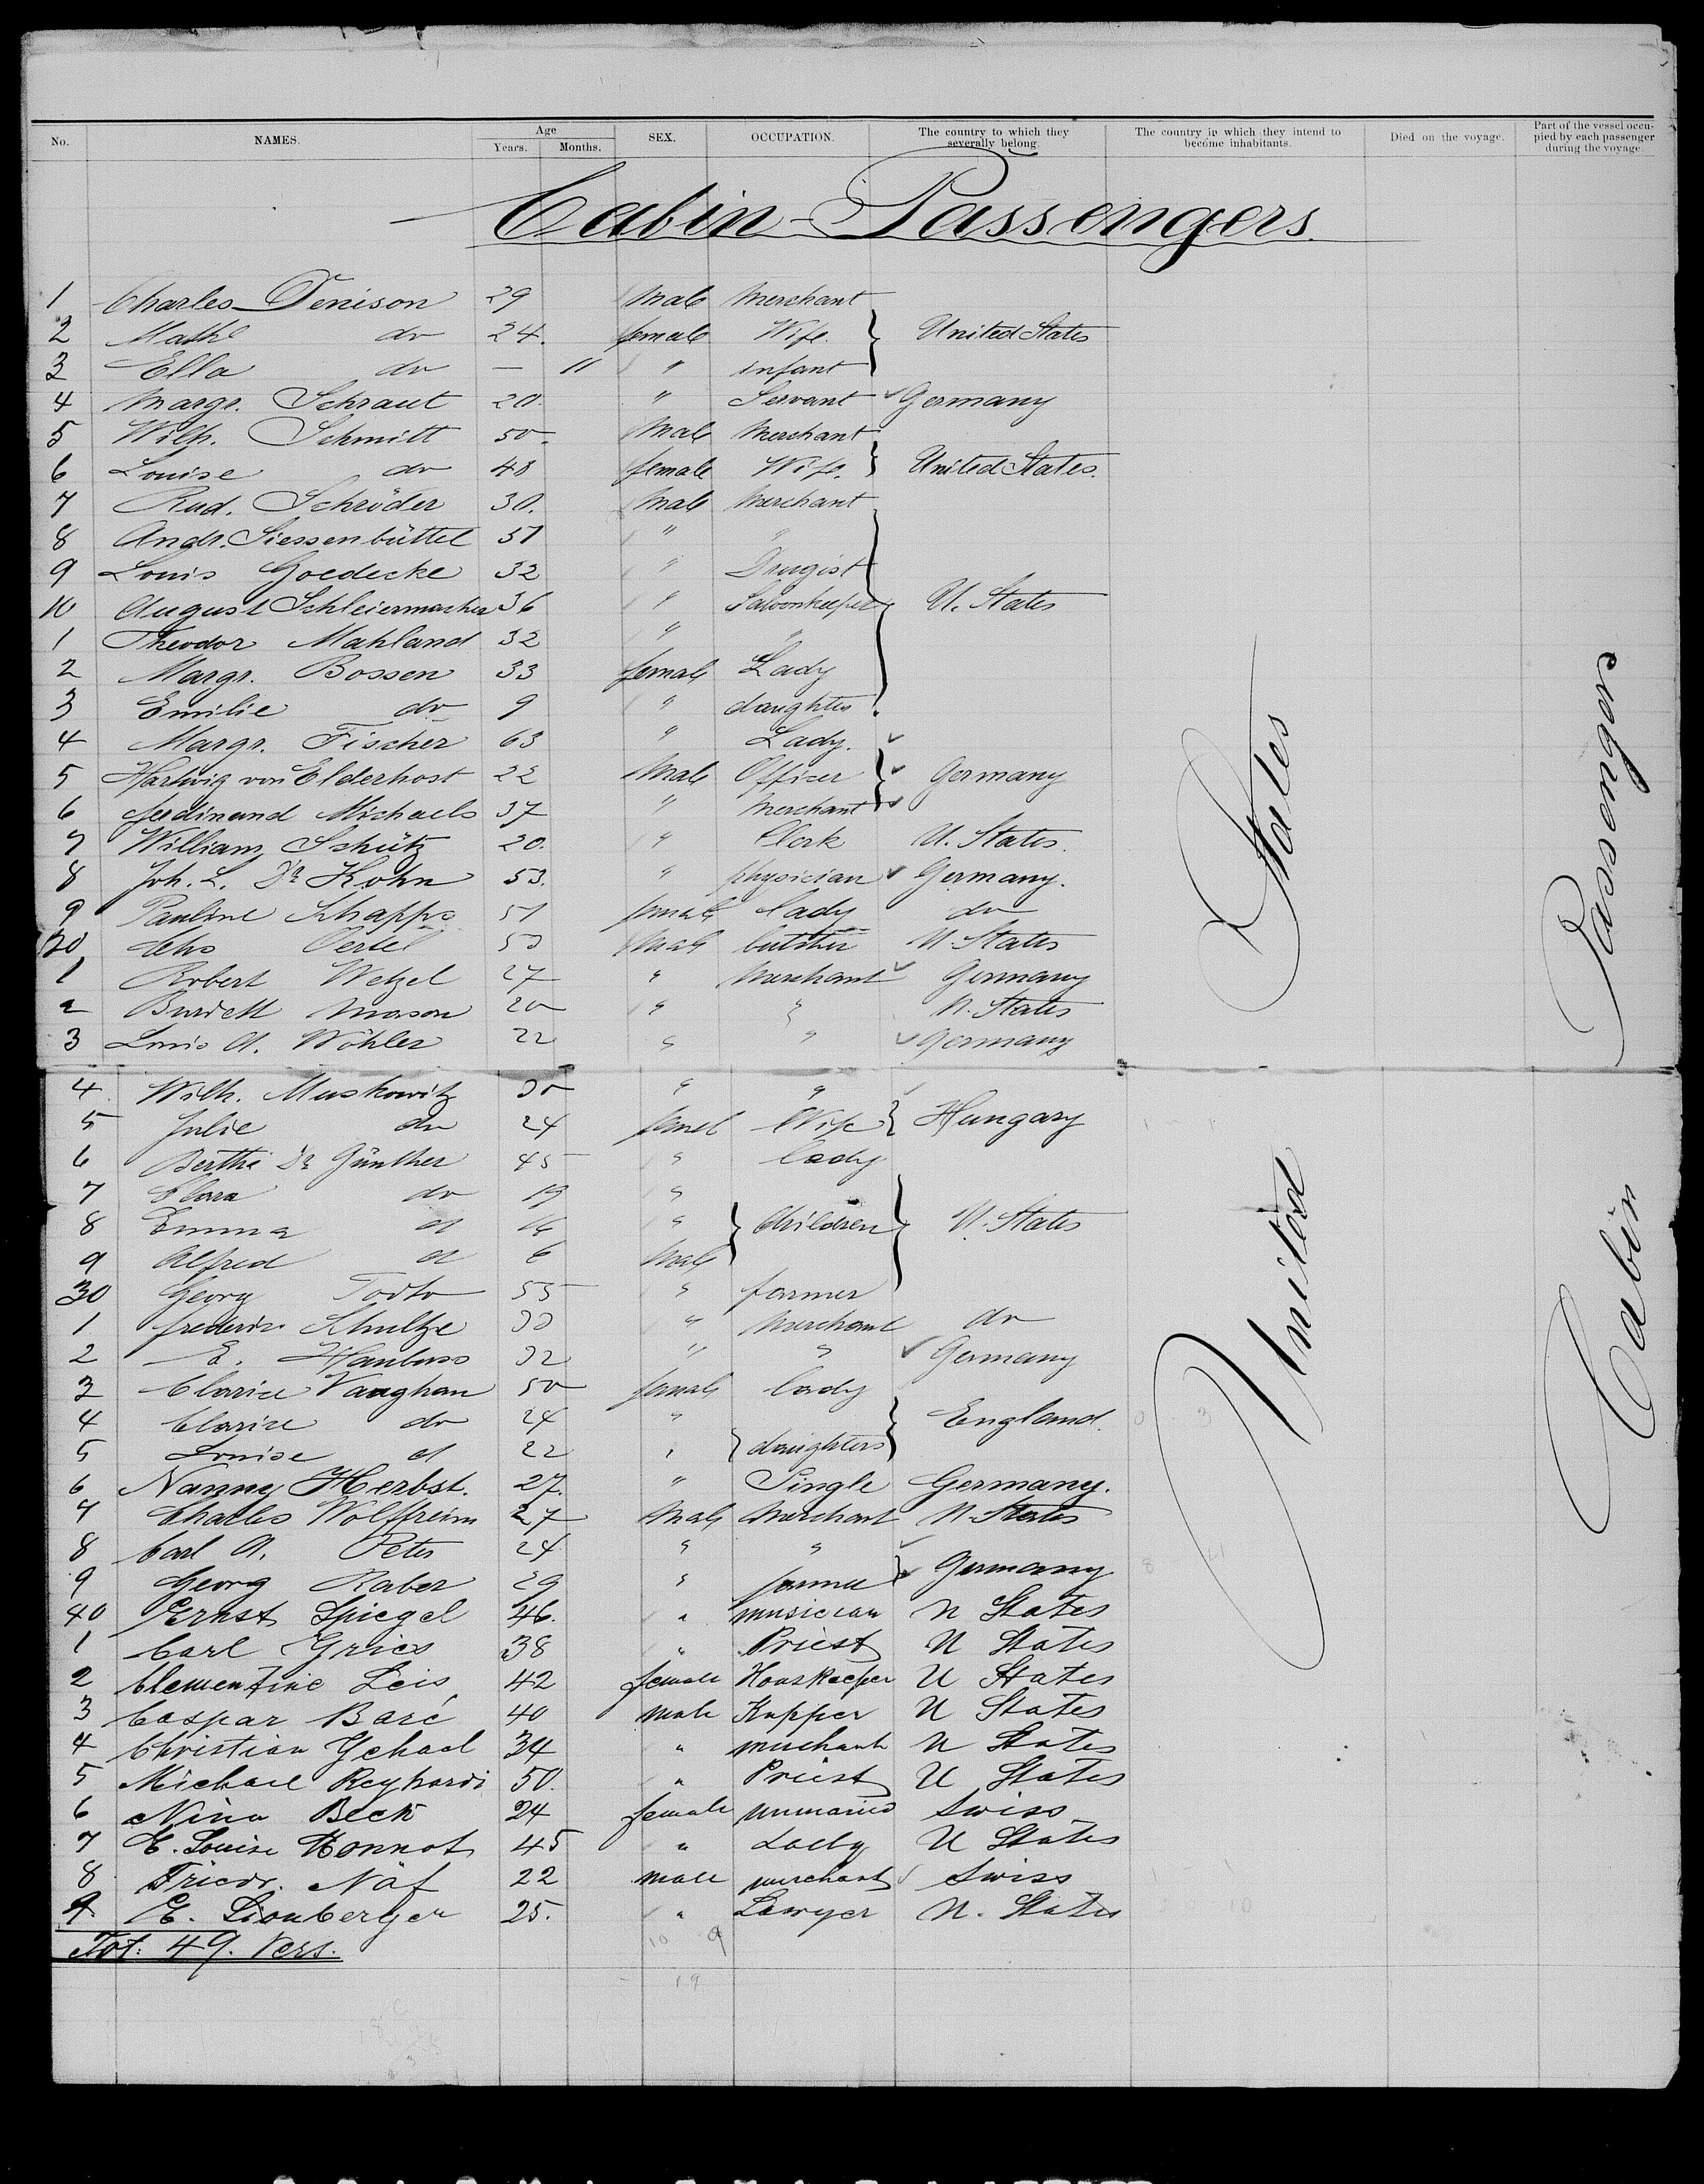 No. NAMES. Age Years. Months. SEX. OCCUPATION. The country to which they severally belong. The country in which they intend to become inhabitants. Died on the voyage. Part of the vessel occupied by each passenger during the voyage.
Cabin-Passengers.
1 Charles Denison 29 Male Merchant
2 Mathl do 24. female Wife. United States
3 Ella do — 11 " infant
4 Margr. Schraut 20. " Servant Germany
5 Wilh. Schmitt 50. Male Merchant
6 Louise do 48 female Wife. United States.
7 Rud. Schröder 30. Male Merchant
8 Andr. Siessenbüttel 51 " "
9 Louis Goedecke 32 " Drugist
10 August Schleiermacher 36 " Saloonkeeper U. States
1 Theodor Mahland 32 " "
2 Margr. Bossen 33 female Lady
3 Emilie do 9 " daughter
4 Margr. Fischer 63 " Lady.
5 Hartwig von Elderhost 22 Male Officer Germany
6 Ferdinand Michaels 37 " Merchant
7 William Schütz 20. " Clerk U. States.
8 Joh. L. Dr Kohn 53. " physician Germany.
9 Pauline Schapps 51 female Lady do
20 Oertel 50 Male butcher U. States
1 Robert Wetzel 27 " Merchant Germany
2 Burdett Mason 20 " " U. States
3 Louis A. Wöhler 22 " " Germany
4 Wilh. Muskowitz 30 " "
5 Julie do 24 female Wife Hungary
6 Bertha Dr Günther 45 " lady
7 Clara do 19 "
8 Emma d 16 " Children U. States
9 Alfred d 6 Male
30 Georg Todto 55 " farmer
1 Frederic Schultze 33 " Merchant do
2 E. 32 " " Germany
3 Clarice Vaughan 50 female lady
4 Clarice do 24 " England.
5 Louise d 22 " daughters
6 Nanny Herbst. 27. " Single Germany.
7 Charles Wolffreim 27 Male Merchant U. States
8 Carl A. Peter 24 " "
9 Georg Raber 29 " farmer Germany
40 Ernst Spiegel 46. " musician U States
1 Carl Gries 38 " Priest U States
2 Clementine Leis 42 female Houskeeper U States
3 Caspar Baré 40 male Kupper U States
4 Christian Schaal 34 " merchant U States
5 Michael Reyhardi 50. " Priest U States
6 Nina Beck 24 female unmaried Swiss
7 E. Louise Honnot 45 " Lady U States
8 Friedr. Näf 22 male merchant Swiss
9 E. Lionberger 25. " Lawyer U. States
Tot. 49. Pers.
10 9
19
United States
Cabin Passengers